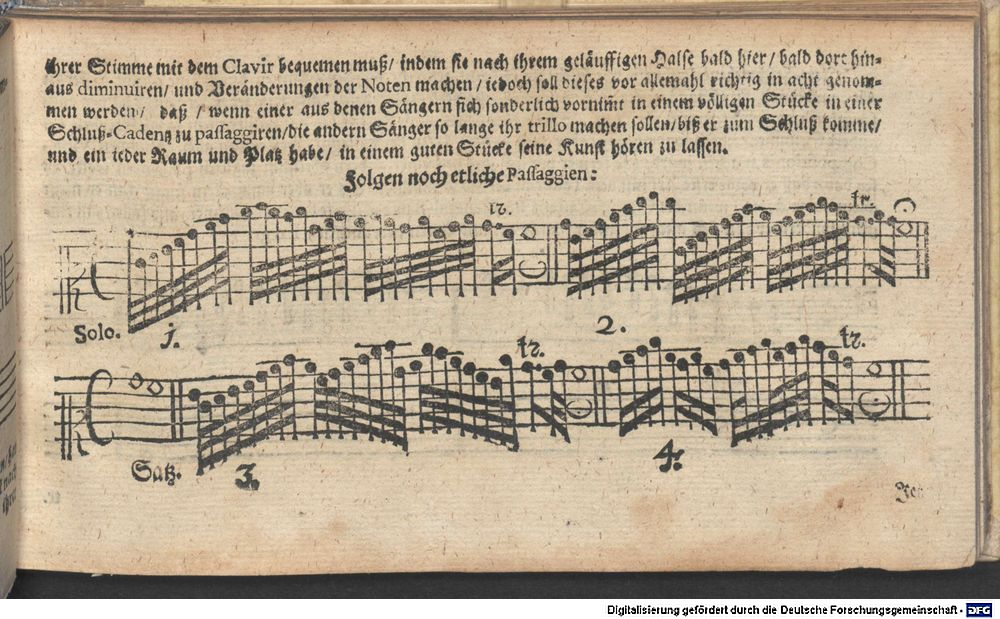 ihrer Stimme mit dem Clavir bequemen muß/ indem sie nach ihrem geläuffigen Halse bald hier/ bald dort hin-
aus diminuiren/ und Veränderungen der Noten machen/ iedoch soll dieses vor allemahl richtig in acht genom-
men werden/ daß / wenn einer aus denen Sängern sich sonderlich vornimt in einem völligen Stücke in einer
Schluß-Cadenz zu passaggiren/ die andern Sänger so lange ihr trillo machen sollen/ biß er zum Schluß komme/
und ein ieder Raum und Platz habe/ in einem guten Stücke seine Kunst hören zu lassen.
Folgen noch etliche Passaggien:
tr. tr.
Solo. 1. 2.
tr. tr.
Satz. 3. 4.
Digitalisierung gefördert durch die Deutsche Forschungsgemeinschaft - DFG